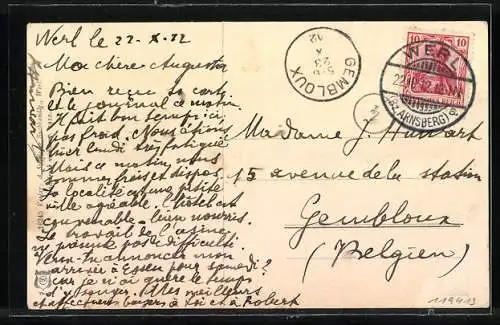 Werl le 22-X-12
Ma chère Augusta
Bien reçu ta carte
et le journal ce matin.
Il fait bon ici
pas froid. Nous étions
hier lundi très fatigué
Mais ce matin nous
sommes frais et dispos.
La localité est une petite
ville agréable. L'hôtel est
convenable - bien nourris.
Le travail de l'usine
ne présente pas de difficulté.
Veux-tu annoncer mon
arrivée à Essen pour samedi?
car je n'ai que le temps
d'y songer. Mes meilleurs
affectueux baisers à toi et à Robert
GEMBLOUX
23
X
12
10 10
WERL
22.10.12
(BZ. ARNSBERG)
a
Madame J. Huart
15 avenue de la station
Gembloux
(Belgien)
119413